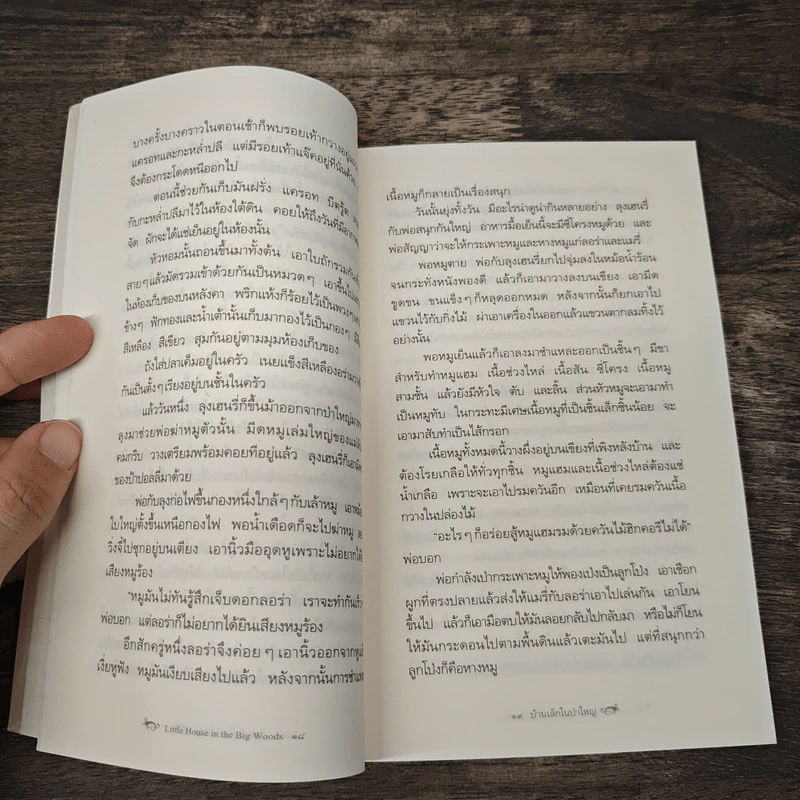 บางครั้งบางคราวในตอนเช้าก็พบรอยเท้ากวางอยู่
แครอทและกะหล่ำปลี แต่มีรอยเท้าแจ๊คอยู่ที่นั่นด้วย
จึงต้องกระโดดหนีออกไป
ตอนนี้ช่วยกันเก็บมันฝรั่ง แครอท บีตรู้ต
กับกะหล่ำปลีมาไว้ในห้องใต้ดิน คอยให้ถึงวันที่มีอากาศ
จัด ผักจะได้แช่เย็นอยู่ในห้องนั้น
หัวหอมนั้นถอนขึ้นมาทั้งต้น เอาใบถักรวมกัน
สายๆ แล้วมัดรวมเข้าด้วยกันเป็นหมวดๆ เอาขึ้นไป
ในห้องเก็บของบนหลังคา พริกแห้งก็ร้อยไว้เป็นพวงๆ
ข้างๆ ฟักทองและน้ำเต้านั้นเก็บมากองไว้เป็นกองๆ
สีเหลือง สีเขียว สุมกันอยู่ตามมุมห้องเก็บของ
ถังใส่ปลาเค็มอยู่ในครัว เนยแข็งสีเหลืองอร่าม
กันเป็นตั้งๆ เรียงอยู่บนชั้นในครัว
แล้ววันหนึ่ง ลุงเฮนรี่ก็ขึ้นม้าออกจากป่าใหญ่
ลุงมาช่วยพ่อฆ่าหมูตัวนั้น มีดหมูเล่มใหญ่ของแม่
คมกริบ วางเตรียมพร้อมคอยทีอยู่แล้ว ลุงเฮนรี่ก็เอามีด
ของป้าปอลลี่มาด้วย
พ่อกับลุงก่อไฟขึ้นกองหนึ่งใกล้ๆ กับเล้าหมู
ใบใหญ่ตั้งขึ้นเหนือกองไฟ พอน้ำเดือดก็จะไปฆ่าหมู
วิ่งจี๋ไปซุกอยู่บนเตียง เอานิ้วมืออุดหูเพราะไม่อยากได้
เสียงหมูร้อง
"หมูมันไม่ทันรู้สึกเจ็บดอกลอร่า เราจะทำกันเร็ว
พ่อบอก แต่ลอร่าก็ไม่อยากได้ยินเสียงหมูร้อง
อีกสักครู่หนึ่งลอร่าจึงค่อยๆ เอานิ้วออกจากหู
เงี่ยหูฟัง หมูมันเงียบเสียงไปแล้ว หลังจากนั้นการชำแหละ
Little House in the Big Woods ๑๘
เนื้อหมูก็กลายเป็นเรื่องสนุก
วันนั้นยุ่งทั้งวัน มีอะไรน่าดูน่ากินหลายอย่าง ลุงเฮนรี่
กับพ่อสนุกกันใหญ่ อาหารมื้อเย็นนี้จะมีซี่โครงหมูด้วย และ
พ่อสัญญาว่าจะให้กระเพาะหมูและหางหมูแก่ลอร่าและแมรี่
พอหมูตาย พ่อกับลุงเฮนรี่ยกไปจุ่มลงในหม้อน้ำร้อน
จนกระทั่งหนังพองดี แล้วก็เอามาวางลงบนเขียง เอามีด
ขูดขน ขนแข็งๆ ก็หลุดออกหมด หลังจากนั้นก็ยกเอาไป
แขวนไว้กับกิ่งไม้ ผ่าเอาเครื่องในออกแล้วแขวนตากลมทิ้งไว้
อย่างนั้น
พอหมูเย็นแล้วก็เอาลงมาชำแหละออกเป็นชิ้นๆ มีขา
สำหรับทำหมูแฮม เนื้อช่วงไหล่ เนื้อสัน ซี่โครง เนื้อหมู
สามชั้น แล้วยังมีหัวใจ ตับ และลิ้น ส่วนหัวหมูจะเอามาทำ
เป็นหมูทับ ในกระทะมีเศษเนื้อหมูที่เป็นชิ้นเล็กชิ้นน้อย จะ
เอามาสับทำเป็นไส้กรอก
เนื้อหมูทั้งหมดนี้วางผึ่งอยู่บนเขียงที่เพิงหลังบ้าน และ
ต้องโรยเกลือให้ทั่วทุกชิ้น หมูแฮมและเนื้อช่วงไหล่ต้องแช่
น้ำเกลือ เพราะจะเอาไปรมควันอีก เหมือนที่เคยรมควันเนื้อ
กวางในปล่องไม้
"อะไรๆ ก็อร่อยสู้หมูแฮมรมด้วยควันไม้ฮิกคอรีไม่ได้"
พ่อบอก
พ่อกำลังเป่ากระเพาะหมูให้พองเป่งเป็นลูกโป่ง เอาเชือก
ผูกที่ตรงปลายแล้วส่งให้แมรี่กับลอร่าเอาไปเล่นกัน เอาโยน
ขึ้นไป แล้วก็เอามือตบให้มันลอยกลับไปกลับมา หรือไม่ก็โยน
ให้มันกระดอนไปตามพื้นดินแล้วเตะมันไป แต่ที่สนุกกว่า
ลูกโป่งก็คือหางหมู
๑๙ บ้านเล็กในป่าใหญ่